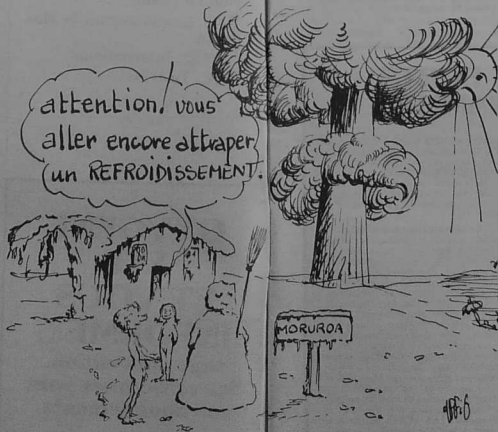 attention! vous
aller encore attraper
un REFROIDISSEMENT.
MORUROA